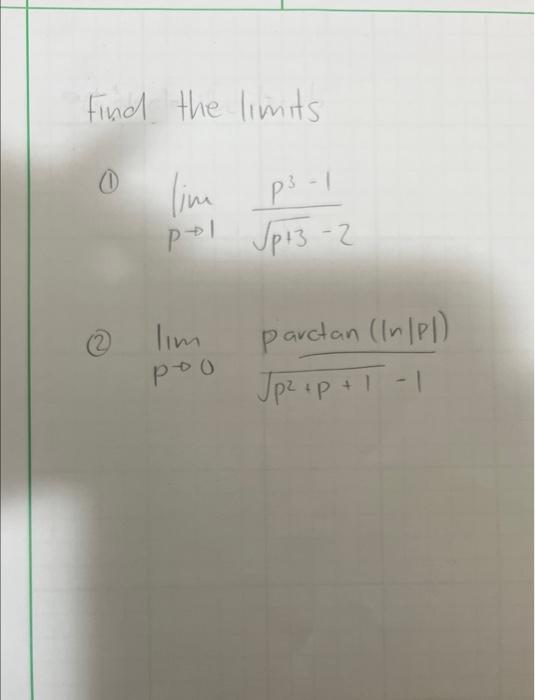 Find the limits
① lim p→1 (p³ - 1)/(√(p+3) - 2)
② lim p→0 (p arctan (ln|p|))/(√(p² + p + 1) - 1)